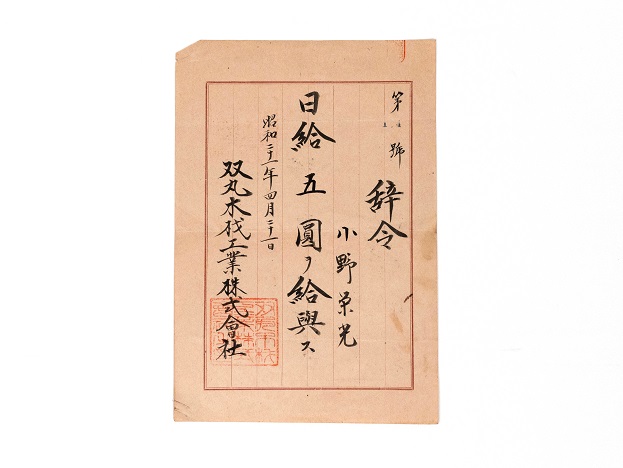 第 號
辞令
小野栄光
日給五圓ヲ給與ス
昭和二十一年四月二十一日
双丸木材工業株式會社